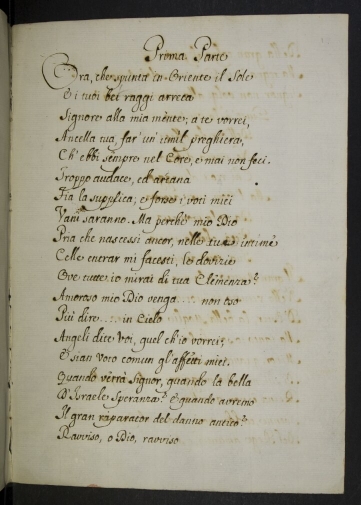 Prima Parte
Ora, che spunta in Oriente il Sole
E i tuoi bei raggi arreca
Signore alla mia mente; a te vorrei,
Ancella tua, far' un' umil preghiera,
Ch' ebbi sempre nel Core, e mai non feci.
Troppo audace, ed arcana
Fia la supplica; e forse i voti miei
Vani saranno. Ma perchè mio Dio
Pria che nascessi ancor, nelle tue intime
Celle entrar mi facesti, le dovizie
Ove tutte io mirai di tua Clemenza?
Amoroso mio Dio venga.... non oso
Più dire.... in Cielo
Angeli dite Voi, quel ch' io vorrei;
E sian voto comun gl' affetti miei.
Quando verrà Signor, quando la bella
D' Israele Speranza? E quando avremo
Il gran riparator del danno antico?
Ravviso, o Dio, ravviso